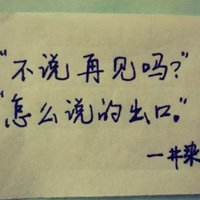 “不说再见吗?”
“怎么说的出口。”
—井染